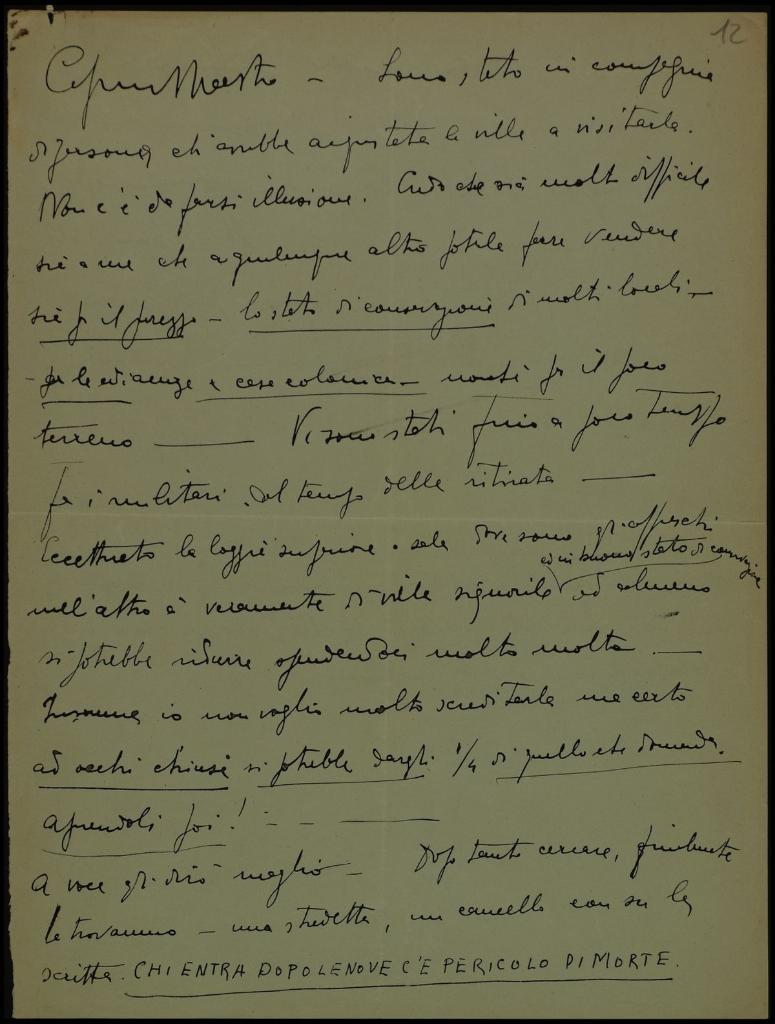 12
Caro Maestro – Sono stato in compagnia
di persona ch'avrebbe acquistata la villa a visitarla.
Non c'è da farsi illusione. Credo che sia molto difficile
sia a me che a qualunque altro potele fare vendere
sia pr il prezzo – lo stato di conservazione di molti locali –
– pr le adiacenze e case coloniche – nonchè pr il poco
terreno — Vi sono stati fino a poco tempo
fa i militari dal tempo della ritirata —
Eccettuato la loggia superiore e sala dove sono gli affreschi
ed in buono stato di conservazione
null'altro è veramente di villa signorile ed almeno
si potrebbe ridurre spendendoci molto molto. —
Insomma io non voglio molto screditarla ma certo
ad occhi chiusi si potrebbe dargli 1/4 di quello che domanda.
aprendoli poi! – – —
A voce gli dirò meglio – Dopo tanto cercare, finalmente
la trovammo – una stradetta, un cancello con su la
scritta. CHI ENTRA DOPO LE NOVE C'E PERICOLO DI MORTE.